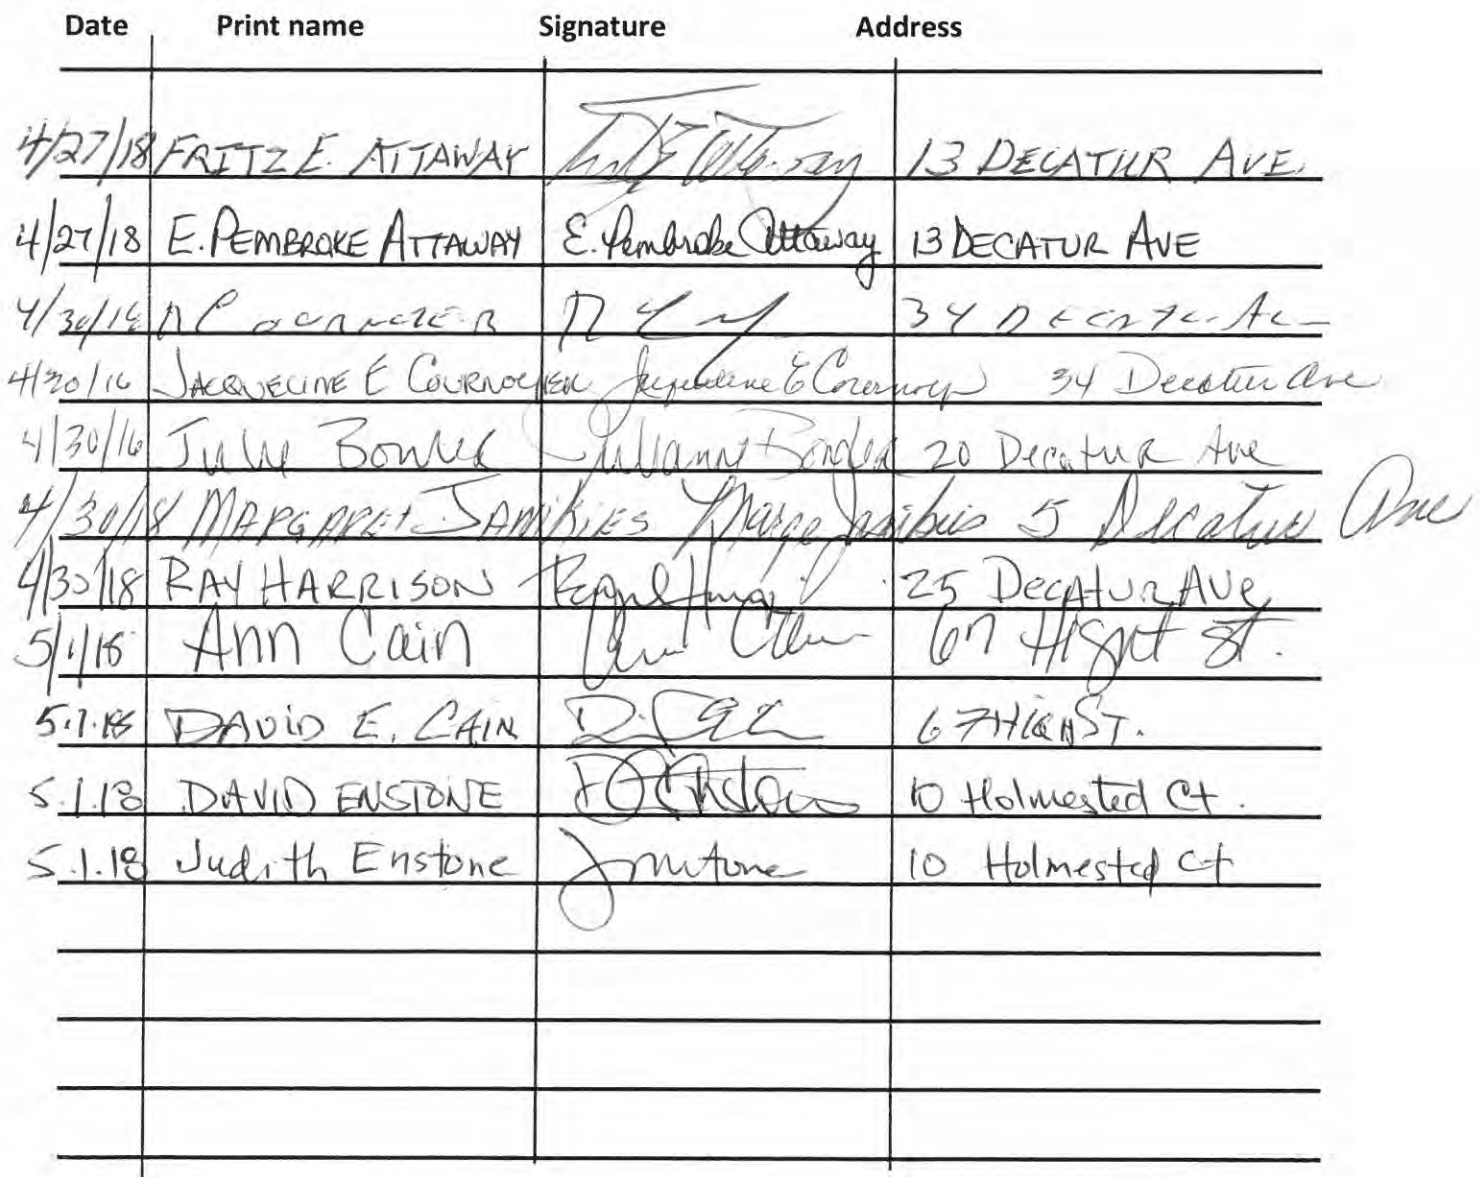 Date Print name Signature Address
4/27/18 FRITZ E. ATTAWAY 13 DECATUR AVE.
4/27/18 E. PEMBROKE ATTAWAY E. Pembroke Attaway 13 DECATUR AVE
4/30/18 34
4/30/16 JACQUELINE E COURNOYER Jacqueline E Cournoyer 34 Decatur Ave
4/30/16 Julie 20 Decatur Ave
4/30/18 MARGARET JAMBIES 5 Decatur Ave
4/30/18 RAY HARRISON 25 DECATUR AVE
5/1/18 Ann Cain 67 Hight St.
5.1.18 DAVID E. CAIN 67 HIGH ST.
5.1.18 DAVID ENSTONE 10 Holmested Ct.
5.1.18 Judith Enstone 10 Holmested Ct